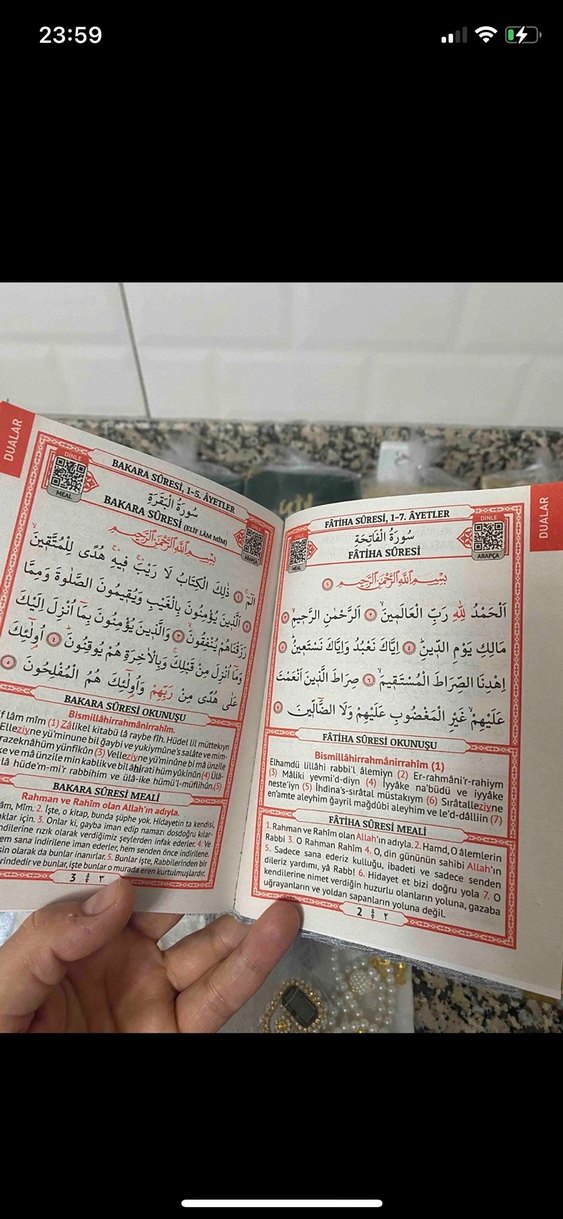 23:59
DUALAR
FÂTİHA SÛRESİ, 1-7. ÂYETLER
سُورَةُ الْفَاتِحَةِ
FÂTİHA SÛRESİ
MEAL
DİNLE
ARAPÇA
بِسْمِ اللّٰهِ الرَّحْمٰنِ الرَّحِيمِ ١
اَلْحَمْدُ لِلّٰهِ رَبِّ الْعَالَمِينَ ٢ اَلرَّحْمٰنِ الرَّحِيمِ ٣
مَالِكِ يَوْمِ الدِّينِ ٤ اِيَّاكَ نَعْبُدُ وَاِيَّاكَ نَسْتَعِينُ ٥
اِهْدِنَا الصِّرَاطَ الْمُسْتَقِيمَ ٦ صِرَاطَ الَّذِينَ اَنْعَمْتَ
عَلَيْهِمْ غَيْرِ الْمَغْضُوبِ عَلَيْهِمْ وَلَا الضَّالِّينَ ٧
FÂTİHA SÛRESİ OKUNUŞU
Bismillâhirrahmânirrahîm (1)
Elhamdü lillâhi rabbi'l âlemiyn (2) Er-rahmâni'r-rahiym
(3) Mâliki yevmi'd-diyn (4) İyyâke na'büdü ve iyyâke
neste'iyn (5) İhdina's-sırâtal müstakıym (6) Sırâtalleziyne
en'amte aleyhim ğayril mağdûbi aleyhim ve le'd-dâlliin (7)
FÂTİHA SÛRESİ MEÂLİ
1. Rahman ve Rahîm olan Allah'ın adıyla. 2. Hamd, O âlemlerin
Rabbi 3. O Rahman Rahîm 4. O, din gününün sahibi Allah'ın
5. Sadece sana ederiz kulluğu, ibadeti ve sadece senden
dileriz yardımı, yâ Rab! 6. Hidayet et bizi doğru yola 7. O
kendilerine nimet verdiğin huzurlu olanların yoluna, gazaba
uğrayanların ve yoldan sapanların yoluna değil.
2 ٢
DUALAR
BAKARA SÛRESİ, 1-5. ÂYETLER
سُورَةُ الْبَقَرَةِ
BAKARA SÛRESİ (ELİF LÂM MÎM)
DİNLE
MEAL
ARAPÇA
بِسْمِ اللّٰهِ الرَّحْمٰنِ الرَّحِيمِ
الٓمٓ ١ ذٰلِكَ الْكِتَابُ لَا رَيْبَ فِيهِ هُدًى لِلْمُتَّقِينَ
٢ اَلَّذِينَ يُؤْمِنُونَ بِالْغَيْبِ وَيُقِيمُونَ الصَّلٰوةَ وَمِمَّا
رَزَقْنَاهُمْ يُنْفِقُونَ ٣ وَالَّذِينَ يُؤْمِنُونَ بِمَا اُنْزِلَ اِلَيْكَ
وَمَا اُنْزِلَ مِنْ قَبْلِكَ وَبِالْاٰخِرَةِ هُمْ يُوقِنُونَ ٤ اُولٰئِكَ
عَلٰى هُدًى مِنْ رَبِّهِمْ وَاُولٰئِكَ هُمُ الْمُفْلِحُونَ ٥
BAKARA SÛRESİ OKUNUŞU
Bismillahirrahmânirrahîm.
f lâm mîm (1) Zâlikel kitabü lâ raybe fîh. Hüdel lil müttekıyn
Elleziyne yü'minune bil ğaybi ve yukiymûne's salâte ve mim-
razeknâhüm yünfikûn (3) Velleziyne yü'minûne bi mâ ünzile
ke ve mâ ünzile min kablik ve bil âhirati hüm yûkinûn (4) Ülâ-
lâ hüde'm-mi'r rabbihim ve ülâ-ike hümü'l-müflihûn (5)
BAKARA SÛRESİ MEALİ
Rahman ve Rahîm olan Allah'ın adıyla.
âm, Mîm. 2. İşte, o kitap, bunda şüphe yok. Hidayetin ta kendisi,
aklar için. 3. Onlar ki, gayba iman edip namazı dosdoğru kılar-
ndilerine rızık olarak verdiğimiz şeylerden infak ederler. 4. Ve
em sana indirilene iman ederler, hem senden önce indirilene.
sin olarak da bunlar inanırlar. 5. Bunlar işte, Rabbilerinden bir
rindedir ve bunlar, işte bunlar o murada eren kurtulmuşlardır.
3 ٣